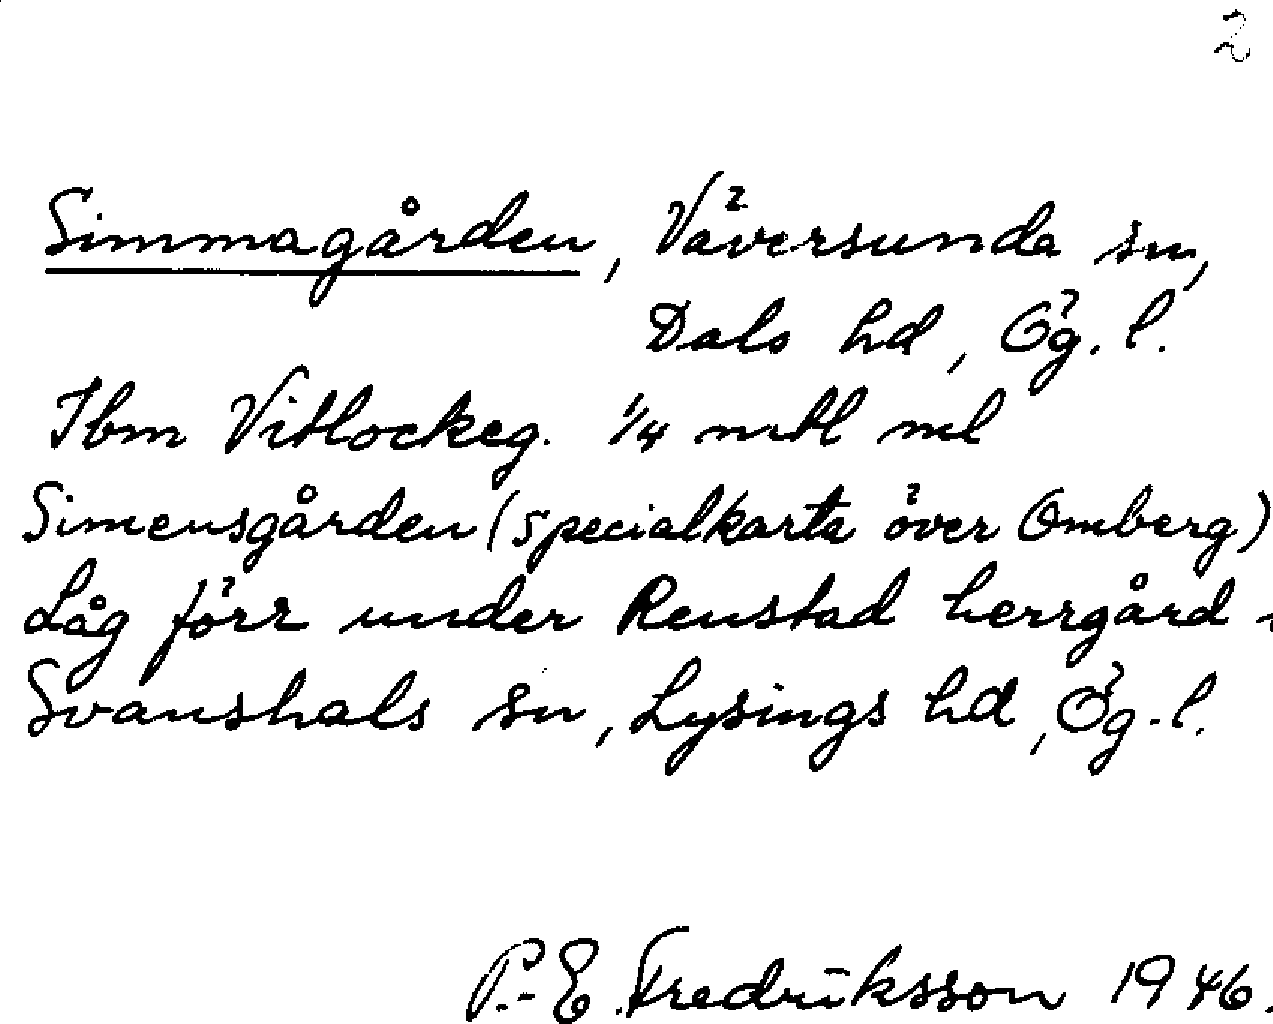 2
Simmagården, Väversunda sn,
Dals hd, Ög. l.
Ibm Vitlockeg. 1/4 mtl
Simensgården (specialkarta över Omberg)
Låg förr under Renstad herrgård i
Svanshals sn, Lysings hd, Ög. l.
P.-E. Fredriksson 1946.